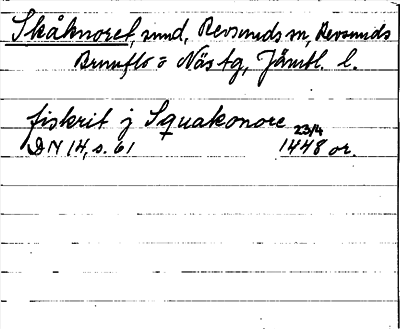 Skåknoret, sund, Revsunds sn, Revsunds
Brunflo o Näs tg, Jämtl. l.
fiskrit j Squakonore 23/4
DN 14, s. 61 1448 or.